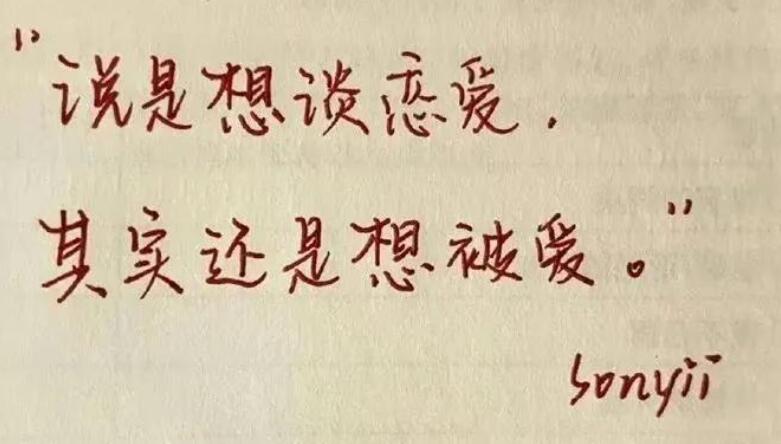 "说是想谈恋爱，
其实还是想被爱。"
sonyii